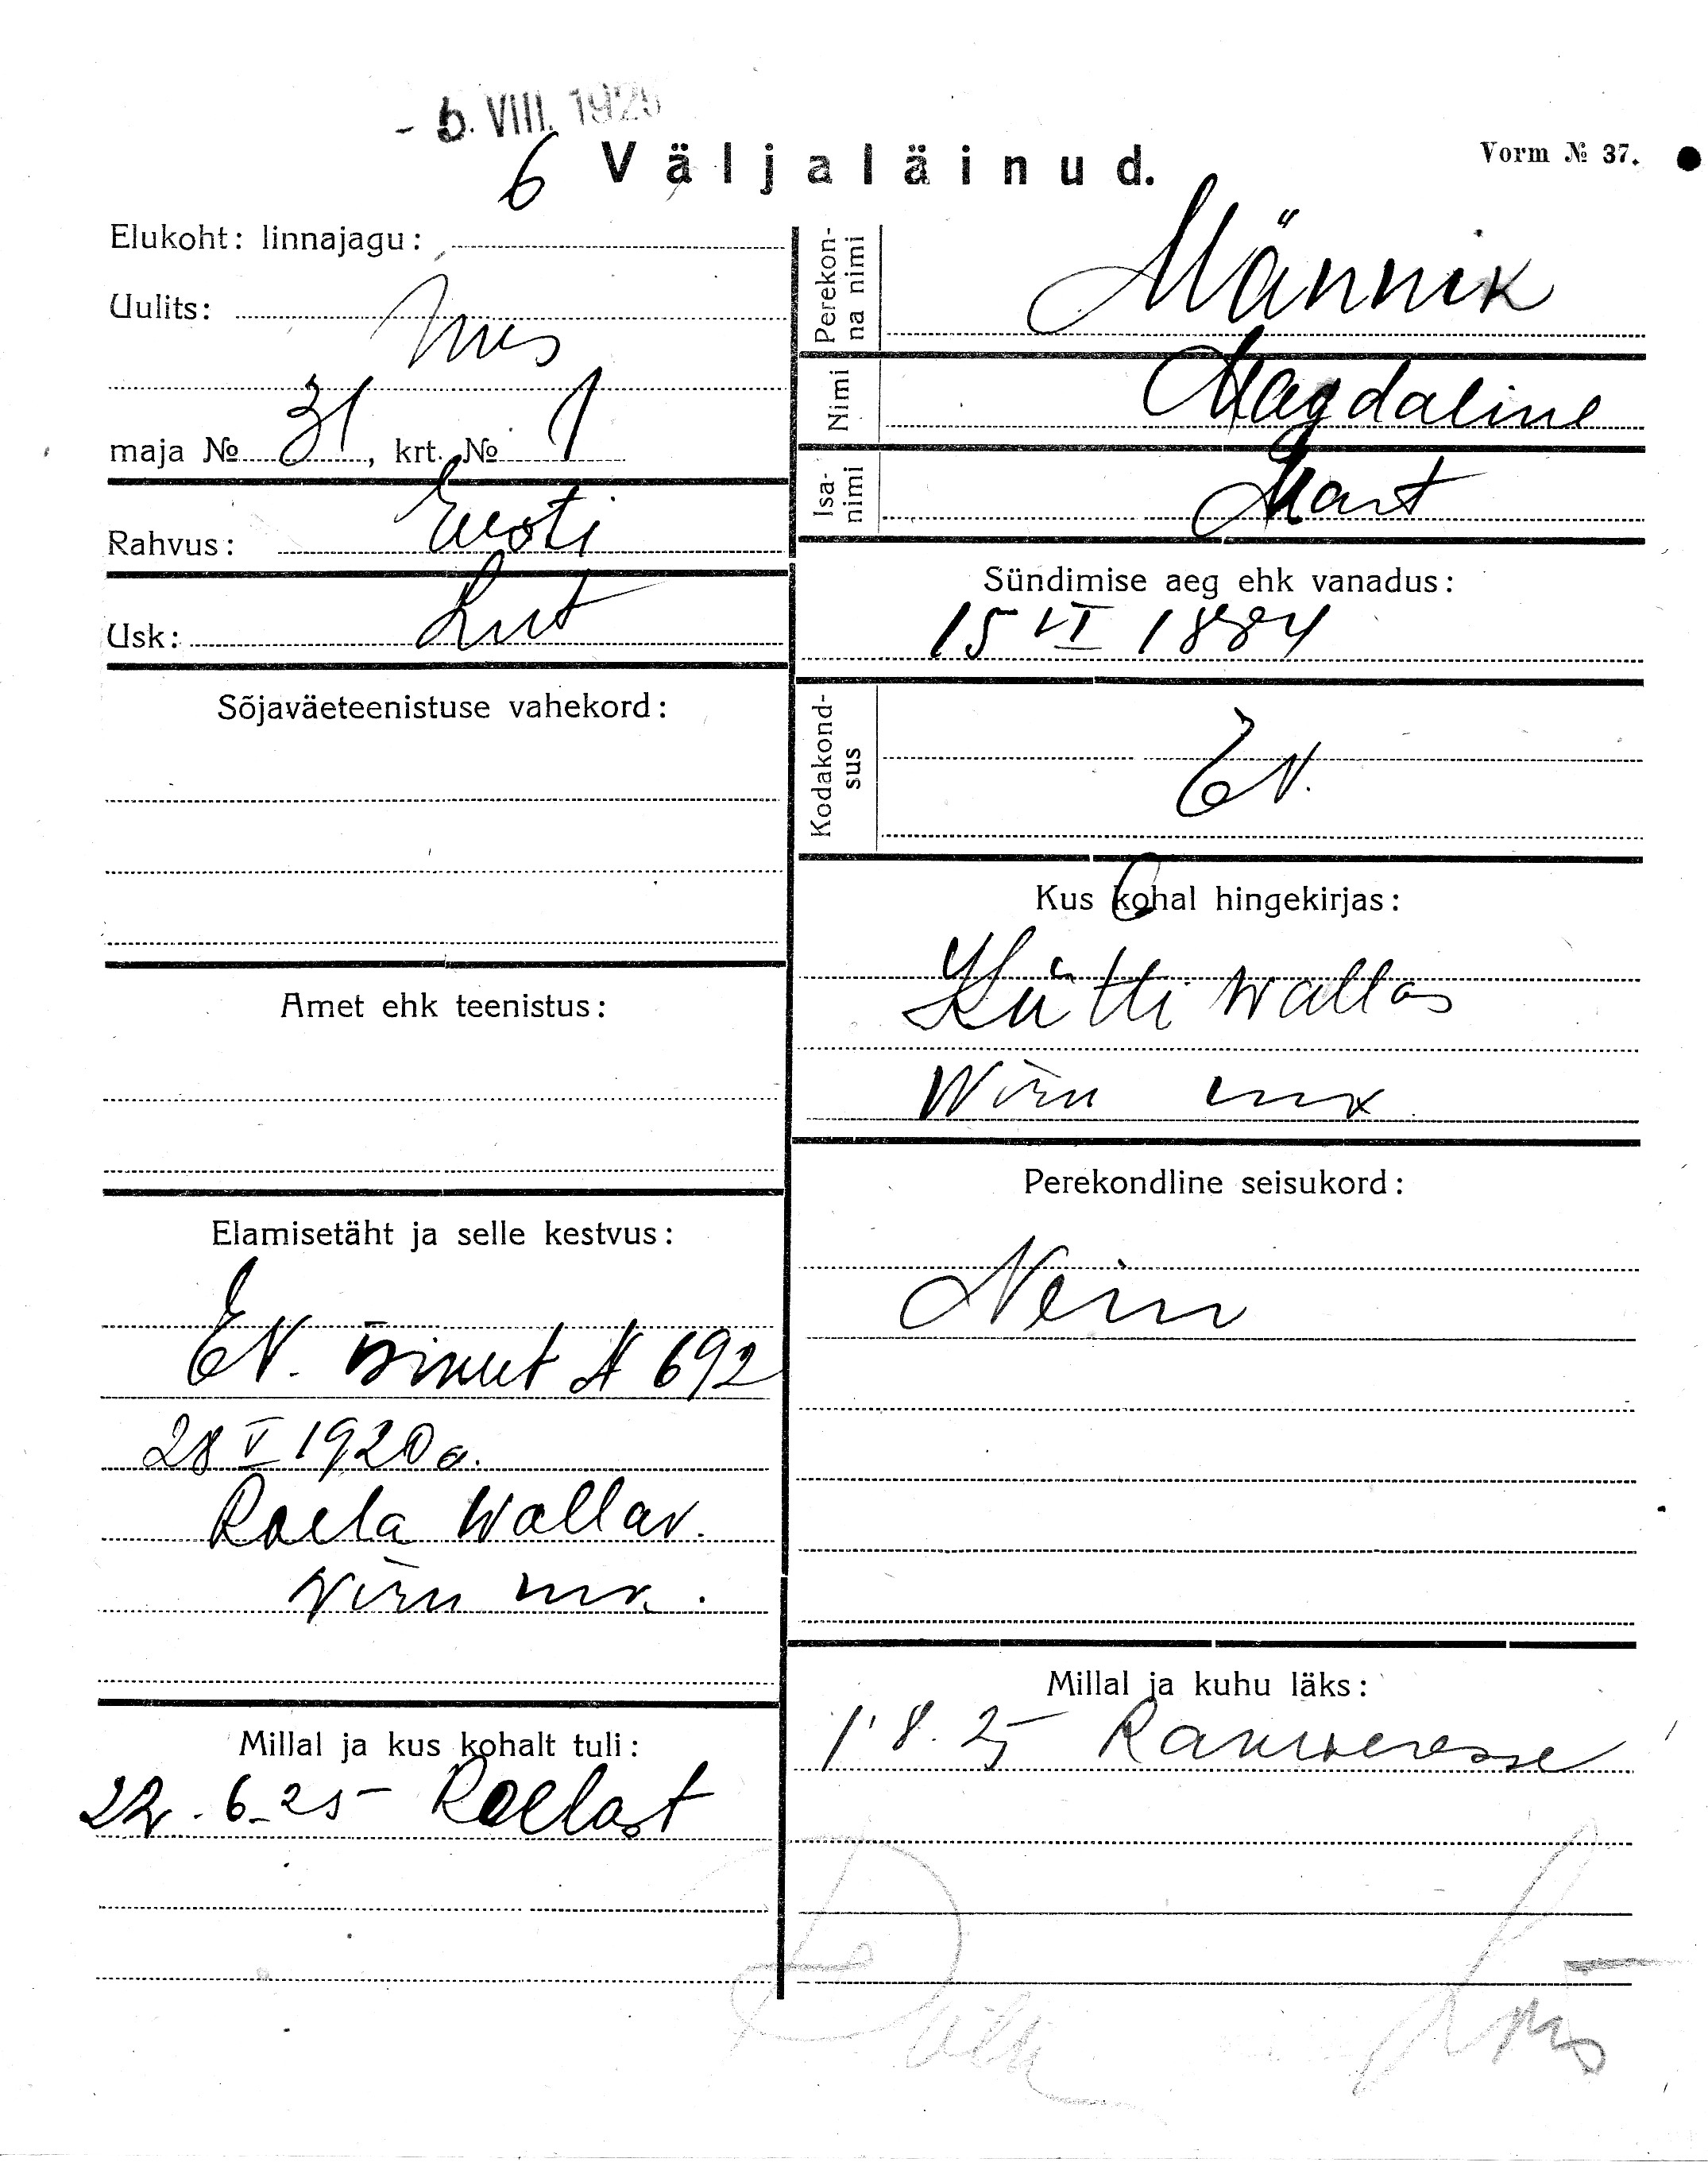 - 5. VIII. 1925
6 Väljaläinud.
Vorm № 37.
Elukoht: linnajagu:
Uulits: Uus
maja № 31, krt. № 1
Rahvus: Eesti
Usk: Lut
Sõjaväeteenistuse vahekord:
Amet ehk teenistus:
Elamisetäht ja selle kestvus:
EV. isikut № 692
28 V 1920 a.
Roela Wallav.
Wiru mk.
Millal ja kus kohalt tuli:
22.6-25 Roelast
Perekonna nimi Männik
Nimi Magdaline
Isanimi Mart
Sündimise aeg ehk vanadus:
15 VI 1884
Kodakondsus EV.
Kus kohal hingekirjas:
Kütti wallas
Wiru mk
Perekondline seisukord:
Neiu
Millal ja kuhu läks:
1'8.25 Rakweresse